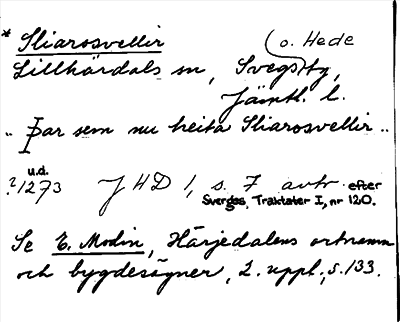 * Sliarosvellir
o. Hede
Lillhärdals sn, Svegs tg,
Jämtl. l.
„ Þar sem nu heita Sliarosvellir „
u.d.
?1273 JHD 1, s. 7 avtr efter
Sverges Traktater I, nr 120.
Se E. Modin, Härjedalens ortnamn
och bygdesägner, 2. uppl., s. 133.